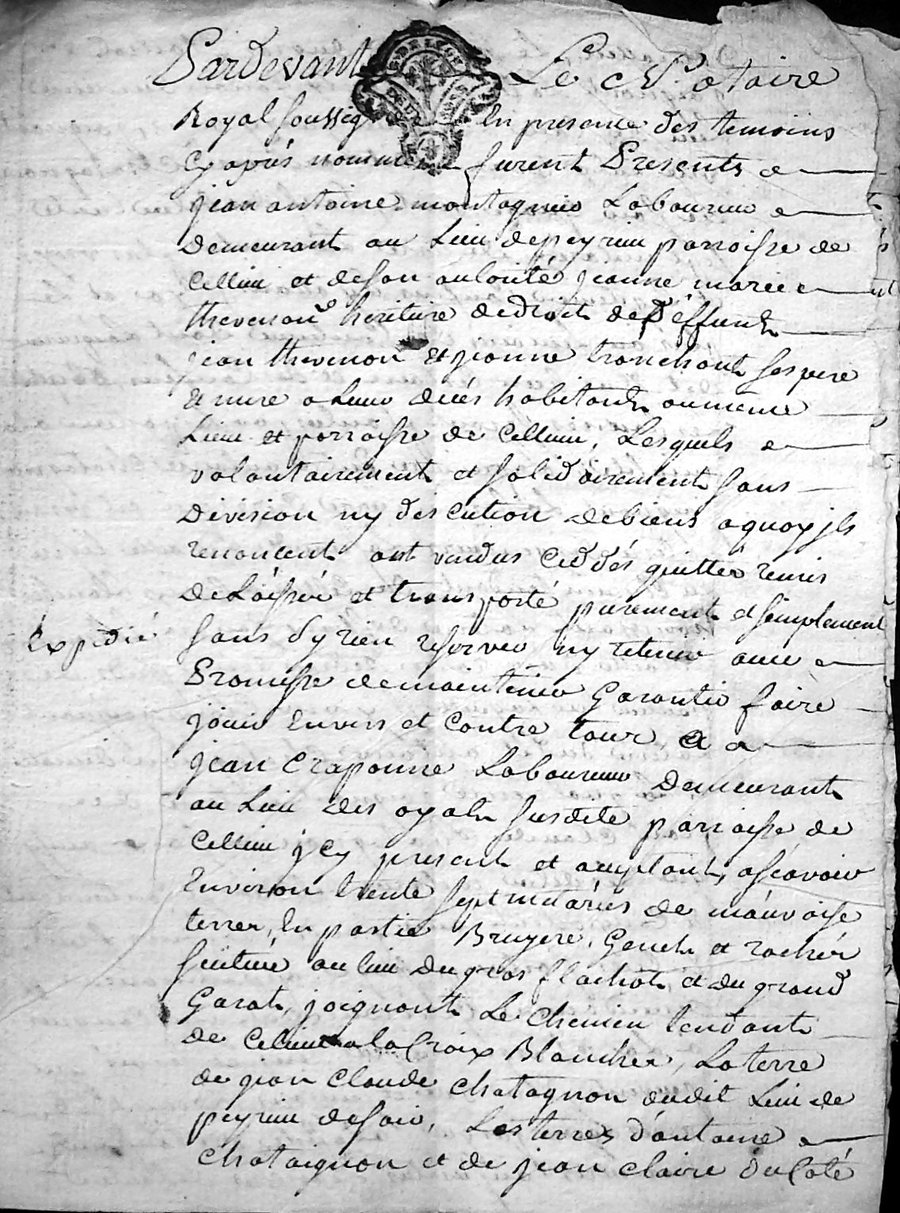 Pardevant Le Notaire
Royal soussig En presence des temoins
Cy aprés nommé furent Presents
jean antoine montagnier Laboureur
Demeurant au Lieu depeyrieu parroisse de
Cellieu et deson authorité jeanne marie
thevenon heritiere dedroit de Deffunts
jean thevenon et jeanne tranchant ses pere
et mere a Leur decés habitants aumeme
Lieu et parroisse de Cellieu, Lesquels
volontairement et solidairement sans
Division ny discution debiens aquoy ils
renoncent ont vendus ceddés quitté remis
deLaissé et transporté purement et simplement
Expedié
sans S'yrien reserver ny retenir avec
Promesse demaintenir Garantir faire
jouir Envers et Contre tous, a
jean Craponne Laboureur Demeurant
au Lieu des oyal susdite parroisse de
Cellieu jcy present et acceptant, ascavoir
Environ trente sept meterées de mauvaise
terres, En partie Bruyere, Genet et rocher
scituée aulieu dugros flachat et dugrand
Garat, joignant Le Chemin tendant
de Cellieu alaCroix Blanche, Laterre
de jean Claude Chatagnon dudit Lieu de
peyrieu desoir, Les terres d'antoine
Chataignon et de jean claire ducoté